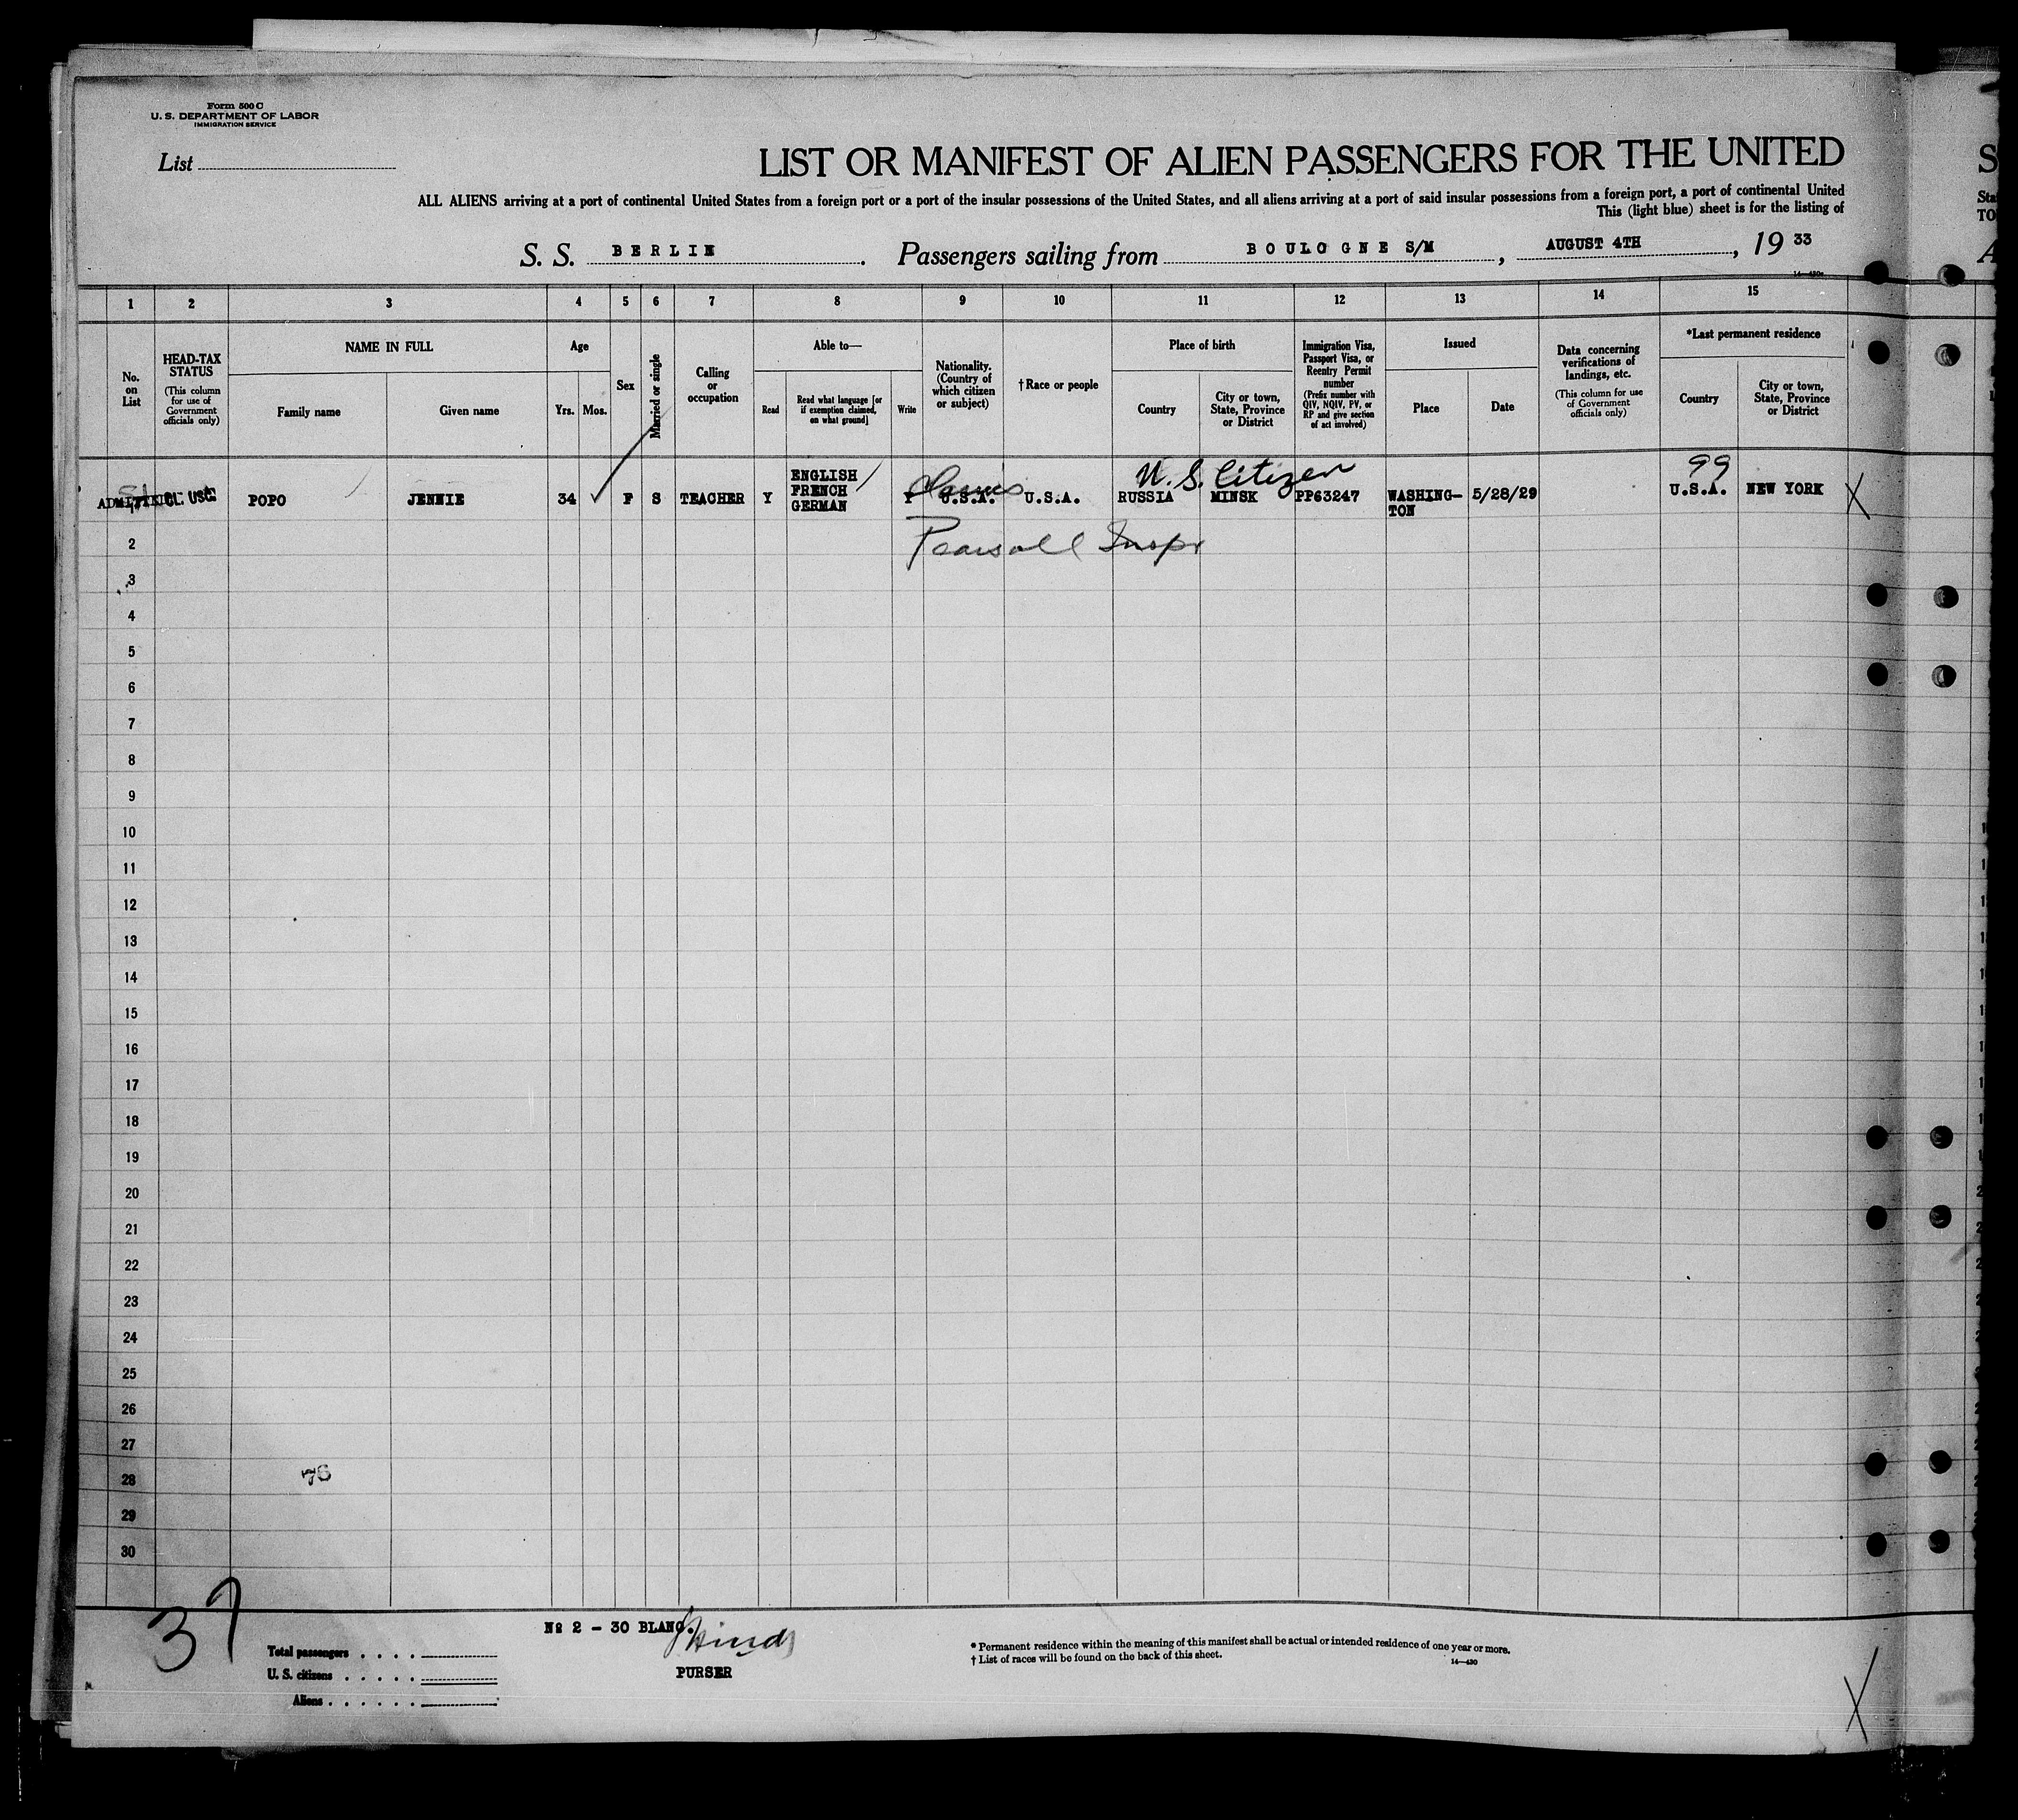 Form 500 C
U. S. DEPARTMENT OF LABOR
IMMIGRATION SERVICE
List
LIST OR MANIFEST OF ALIEN PASSENGERS FOR THE UNITED
ALL ALIENS arriving at a port of continental United States from a foreign port or a port of the insular possessions of the United States, and all aliens arriving at a port of said insular possessions from a foreign port, a port of continental United
This (light blue) sheet is for the listing of
S. S. BERLIN. Passengers sailing from BOULOGNE S/M, AUGUST 4TH, 19 33
1 2 3 4 5 6 7 8 9 10 11 12 13 14 15
No. on List
HEAD-TAX STATUS
(This column for use of Government officials only)
NAME IN FULL
Family name
Given name
Age
Yrs. Mos.
Sex
Married or single
Calling or occupation
Able to—
Read
Read what language [or if exemption claimed, on what ground]
Write
Nationality. (Country of which citizen or subject)
† Race or people
Place of birth
Country
City or town, State, Province or District
Immigration Visa, Passport Visa, or Reentry Permit number
(Prefix number with QIV, NQIV, PV, or RP and give section of act involved)
Issued
Place
Date
Data concerning verifications of landings, etc.
(This column for use of Government officials only)
*Last permanent residence
Country
City or town, State, Province or District
U.S. Citizen
99
ADMITTED CL. USC. POPO JENNIE 34 F S TEACHER Y ENGLISH FRENCH GERMAN U.S.A. U.S.A. RUSSIA MINSK PP63247 WASHINGTON 5/28/29 U.S.A. NEW YORK X
Pearsall Inspr
2
3
4
5
6
7
8
9
10
11
12
13
14
15
16
17
18
19
20
21
22
23
24
25
26
27
28 76
29
30
37
No 2 - 30 BLANC.
PURSER
Total passengers
U. S. citizens
Aliens
* Permanent residence within the meaning of this manifest shall be actual or intended residence of one year or more.
† List of races will be found on the back of this sheet.
14—430
X